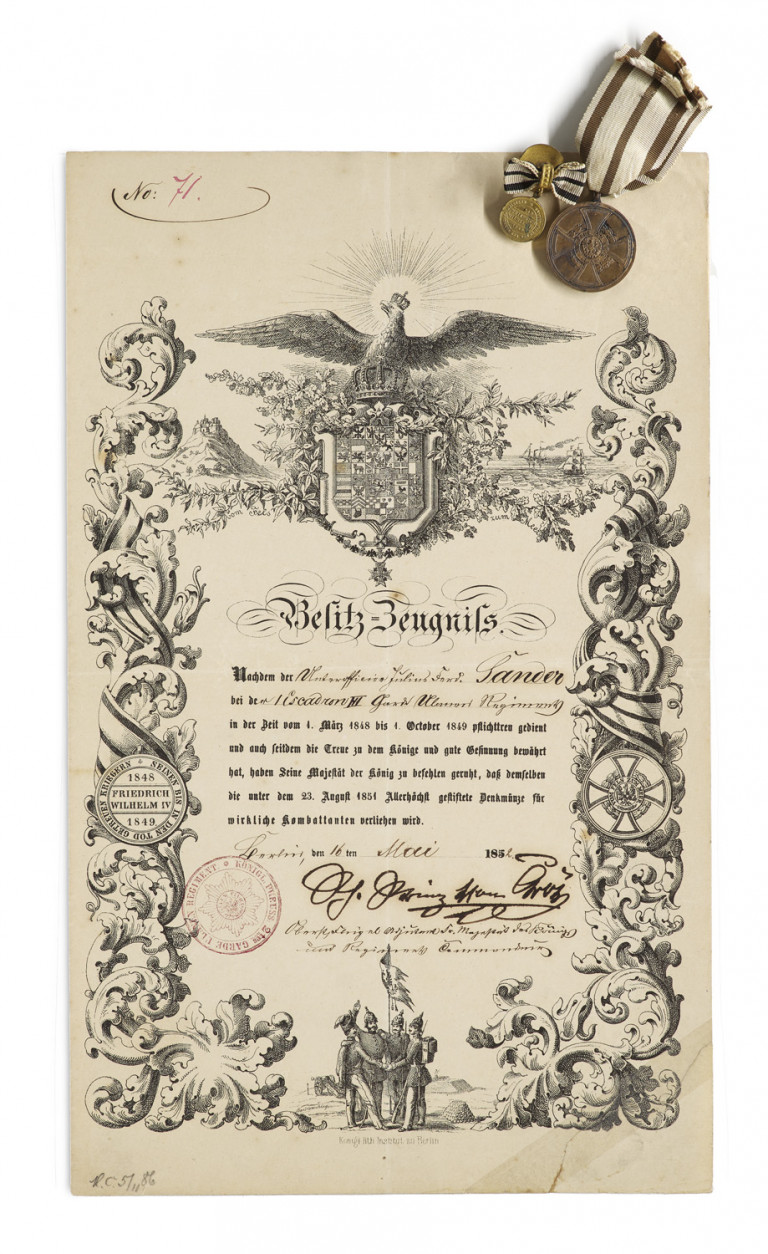 No: 71.
vom Fels
zum
Besitz-Zeugniſs.
Nachdem der Unterofficier Julius Ferd. Sander
bei der 1 Escadron Garde Ulanen Regiments
in der Zeit vom 1. März 1848 bis 1. October 1849 pflichttreu gedient
und auch seitdem die Treue zu dem Könige und gute Gesinnung bewährt
hat, haben Seine Majestät der König zu befehlen geruht, daß demselben
die unter dem 23. August 1851 Allerhöchst gestiftete Denkmünze für
wirkliche Kombattanten verliehen wird.
Berlin, den 16 ten Mai 1852.
SEINEN BIS IN DEN TOD GETREUEN KRIEGERN
1848
FRIEDRICH
WILHELM IV
1849
KÖNIGL. PREUSS. 2tes GARDE ULANEN REGIMENT
Prinz
Oberst, Flügel Adjutant Sr. Majestät des Königs
und Regiments Commandeur
Königl. lith. Institut zu Berlin